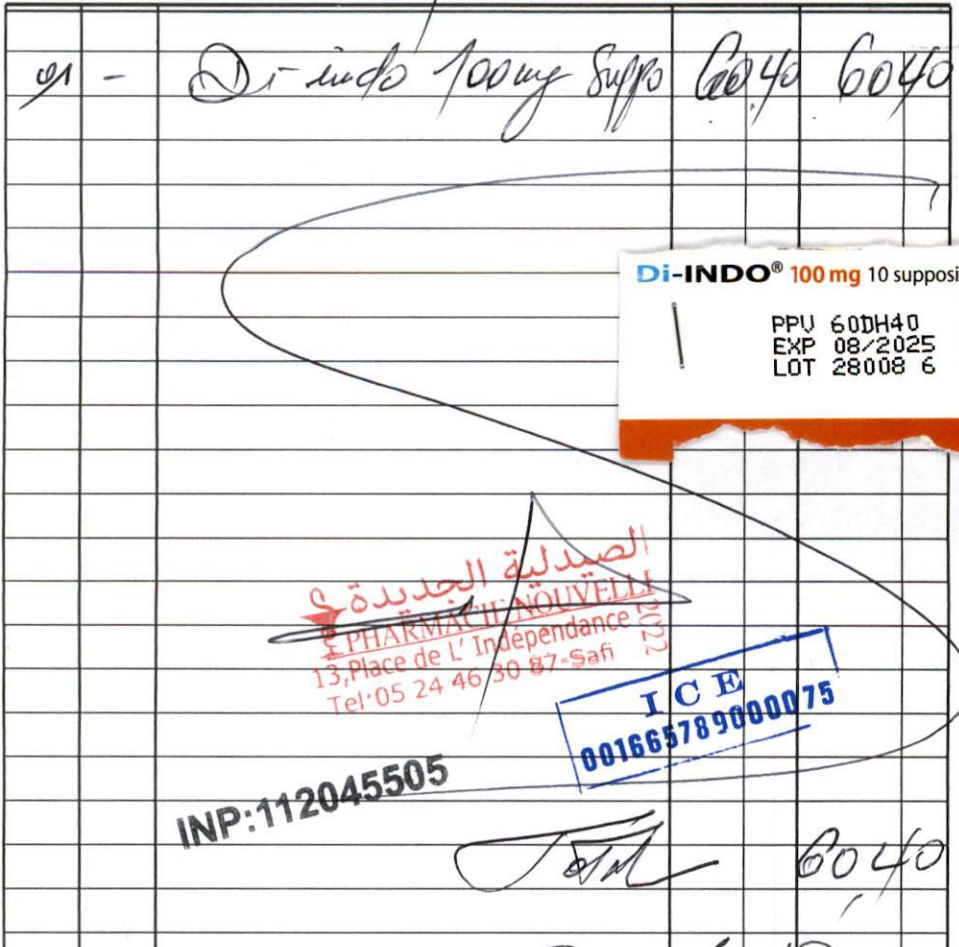 01 - Di-indo 100mg Suppo 60,40 60,40
Di-INDO® 100 mg 10 supposi
PPV 60DH40
EXP 08/2025
LOT 28008 6
الصيدلية الجديدة
PHARMACIE NOUVELLE 2022
13,Place de L' Indépendance
Tel:05 24 46 30 87-Safi
I C E
001665789000075
INP:112045505
Total 60,40